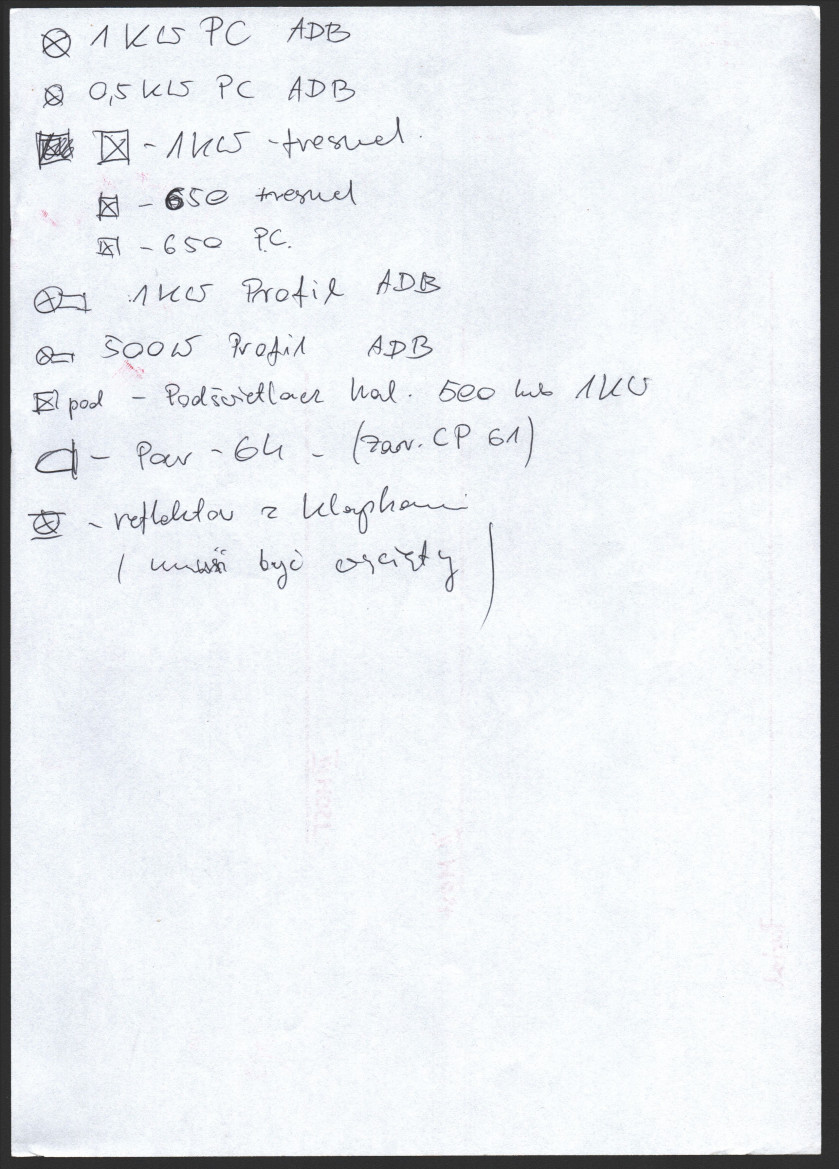 1 KW PC ADB
0,5 KW PC ADB
- 1KW fresnel.
- 650 fresnel
- 650 P.C.
1KW Profil ADB
500W Profil ADB
pod - Podświetlacz hal. 500 lub 1KW
- Par - 64 - (żar. CP 61)
- reflektor z klapkami
(musi być ościęty)